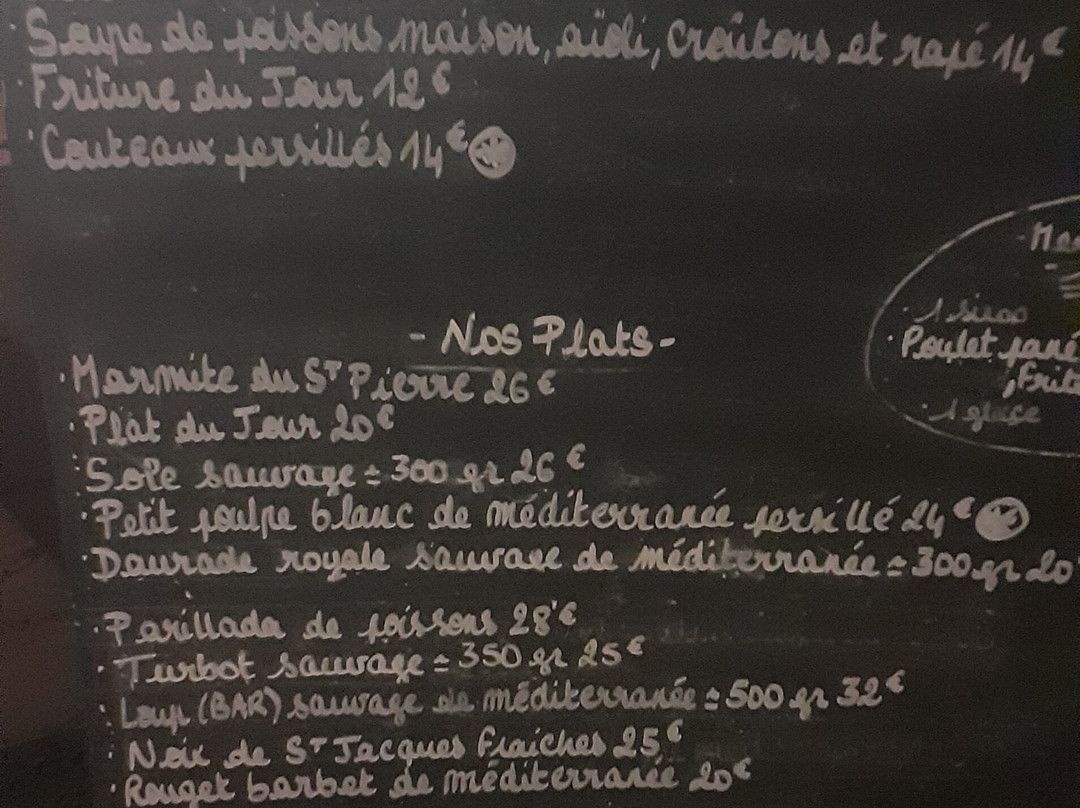 · Soupe de poissons maison, aïoli, croûtons et rapé 14€
· Friture du Jour 12€
· Couteaux persillés 14€
- Nos Plats -
· Marmite du St Pierre 26€
· Plat du Jour 20€
· Sole sauvage ± 300 gr 26€
· Petit poulpe blanc de méditerranée persillé 24€
· Daurade royale sauvage de méditerranée ± 300 gr 20
· Parillada de poissons 28€
· Turbot sauvage ± 350 gr 25€
· Loup (BAR) sauvage de méditerranée ± 500 gr 32€
· Noix de St Jacques fraiches 25€
· Rouget barbet de méditerranée 20€
· 1 sirop
· Poulet pané
, Frite
· 1 glace